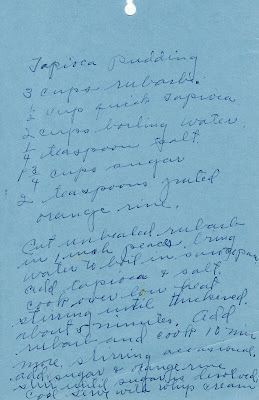 Tapioca Pudding
3 cups rubarb.
1/2 cup quick tapioca
2 cups boiling water
1/4 teaspoon salt.
1 3/4 cups sugar
2 teaspoons grated
orange rine.
Cut unpealed rubarb
in 1 inch peaces, bring
water to boil in saucepan
add tapioca & salt.
cook over low heat
stirring until thickened.
about 5 minutes. Add
rubarb and cook 10 min
more, stirring occasional.
add sugar & orange rine
stir until sugar is disolved
Cool serve with whip cream